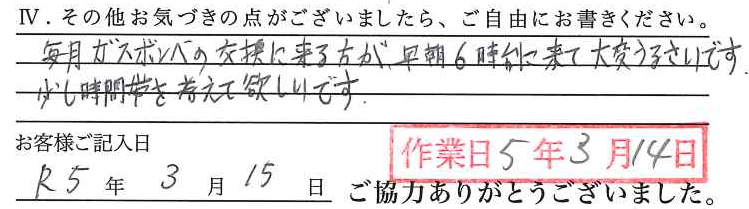 Ⅳ．その他お気づきの点がございましたら、ご自由にお書きください。
毎月ガスボンベの交換に来る方が、早朝6時台に来て大変うるさいです.
少し時間帯を考えて欲しいです.
お客様ご記入日
作業日5年3月14日
R5年3月15日 ご協力ありがとうございました。